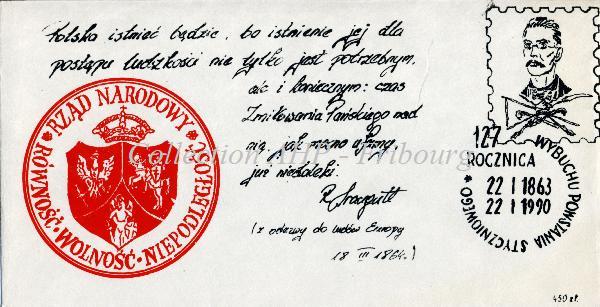 Polska istnieć będzie, bo istnienie jej dla
postępu ludzkości nie tylko jest potrzebnym,
ale i koniecznym: czas
Zmiłowania Pańskiego nad
nią, jak mocno ufamy,
już niedaleki.
R. Traugutt
(z odezwy do ludów Europy
18 III 1864.)
RZĄD NARODOWY
RÓWNOŚĆ · WOLNOŚĆ · NIEPODLEGŁOŚĆ
127
ROCZNICA
WYBUCHU POWSTANIA STYCZNIOWEGO
22 I 1863
22 I 1990
Collection AHP - Fribourg
450 zł.